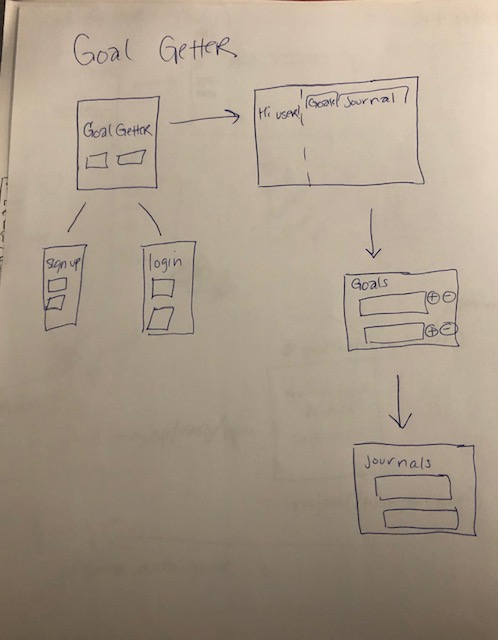 Goal Getter
Goal Getter
Hi user!
Goals
Journal
sign up
login
Goals
+ -
+ -
Journals